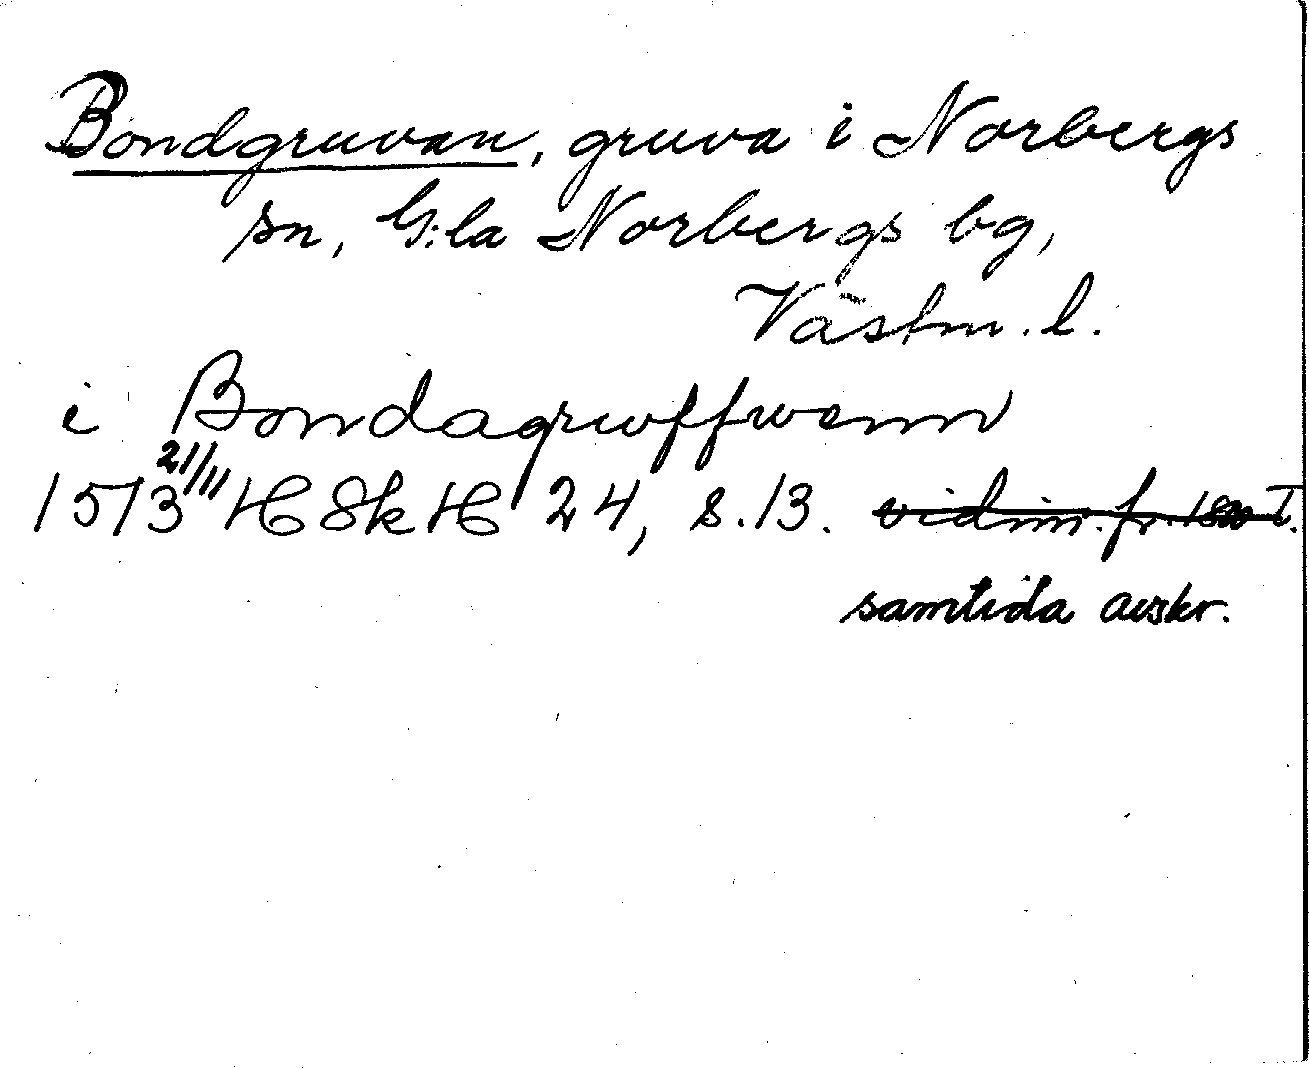 Bondgruvan, gruva i Norbergs
sn, G:la Norbergs bg,
Västm. l.
i Bondagruffwenn
1573 21/11 HSkH 24, s.13. vidim. fr.
samtida avskr.